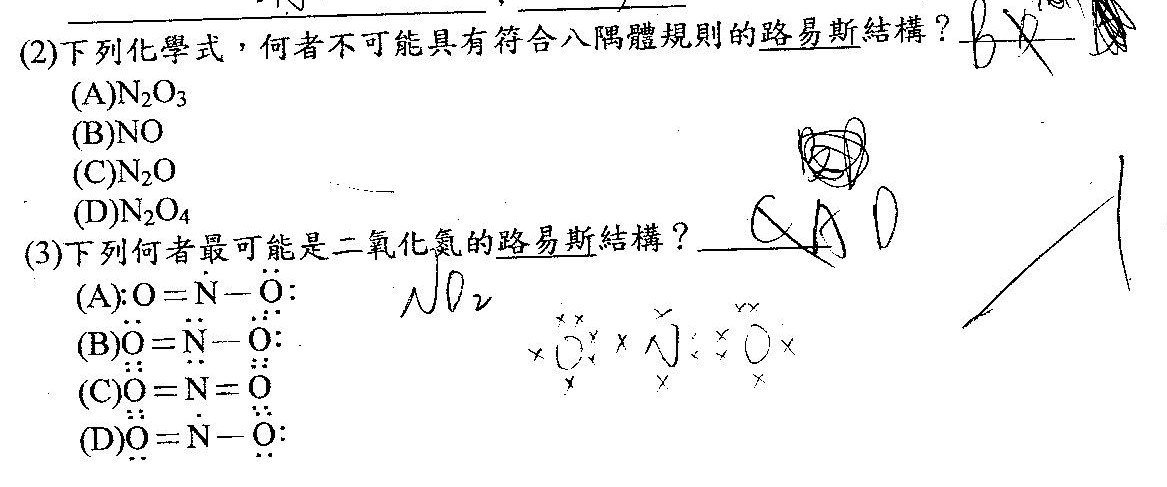 (2)下列化學式，何者不可能具有符合八隅體規則的路易斯結構？B
(A)N₂O₃
(B)NO
(C)N₂O
(D)N₂O₄
(3)下列何者最可能是二氧化氮的路易斯結構？C A D
(A):O=N–O: NO₂
(B)O=N–O: ×O: × N: :O×
(C)O=N=O
(D)O=N–O: